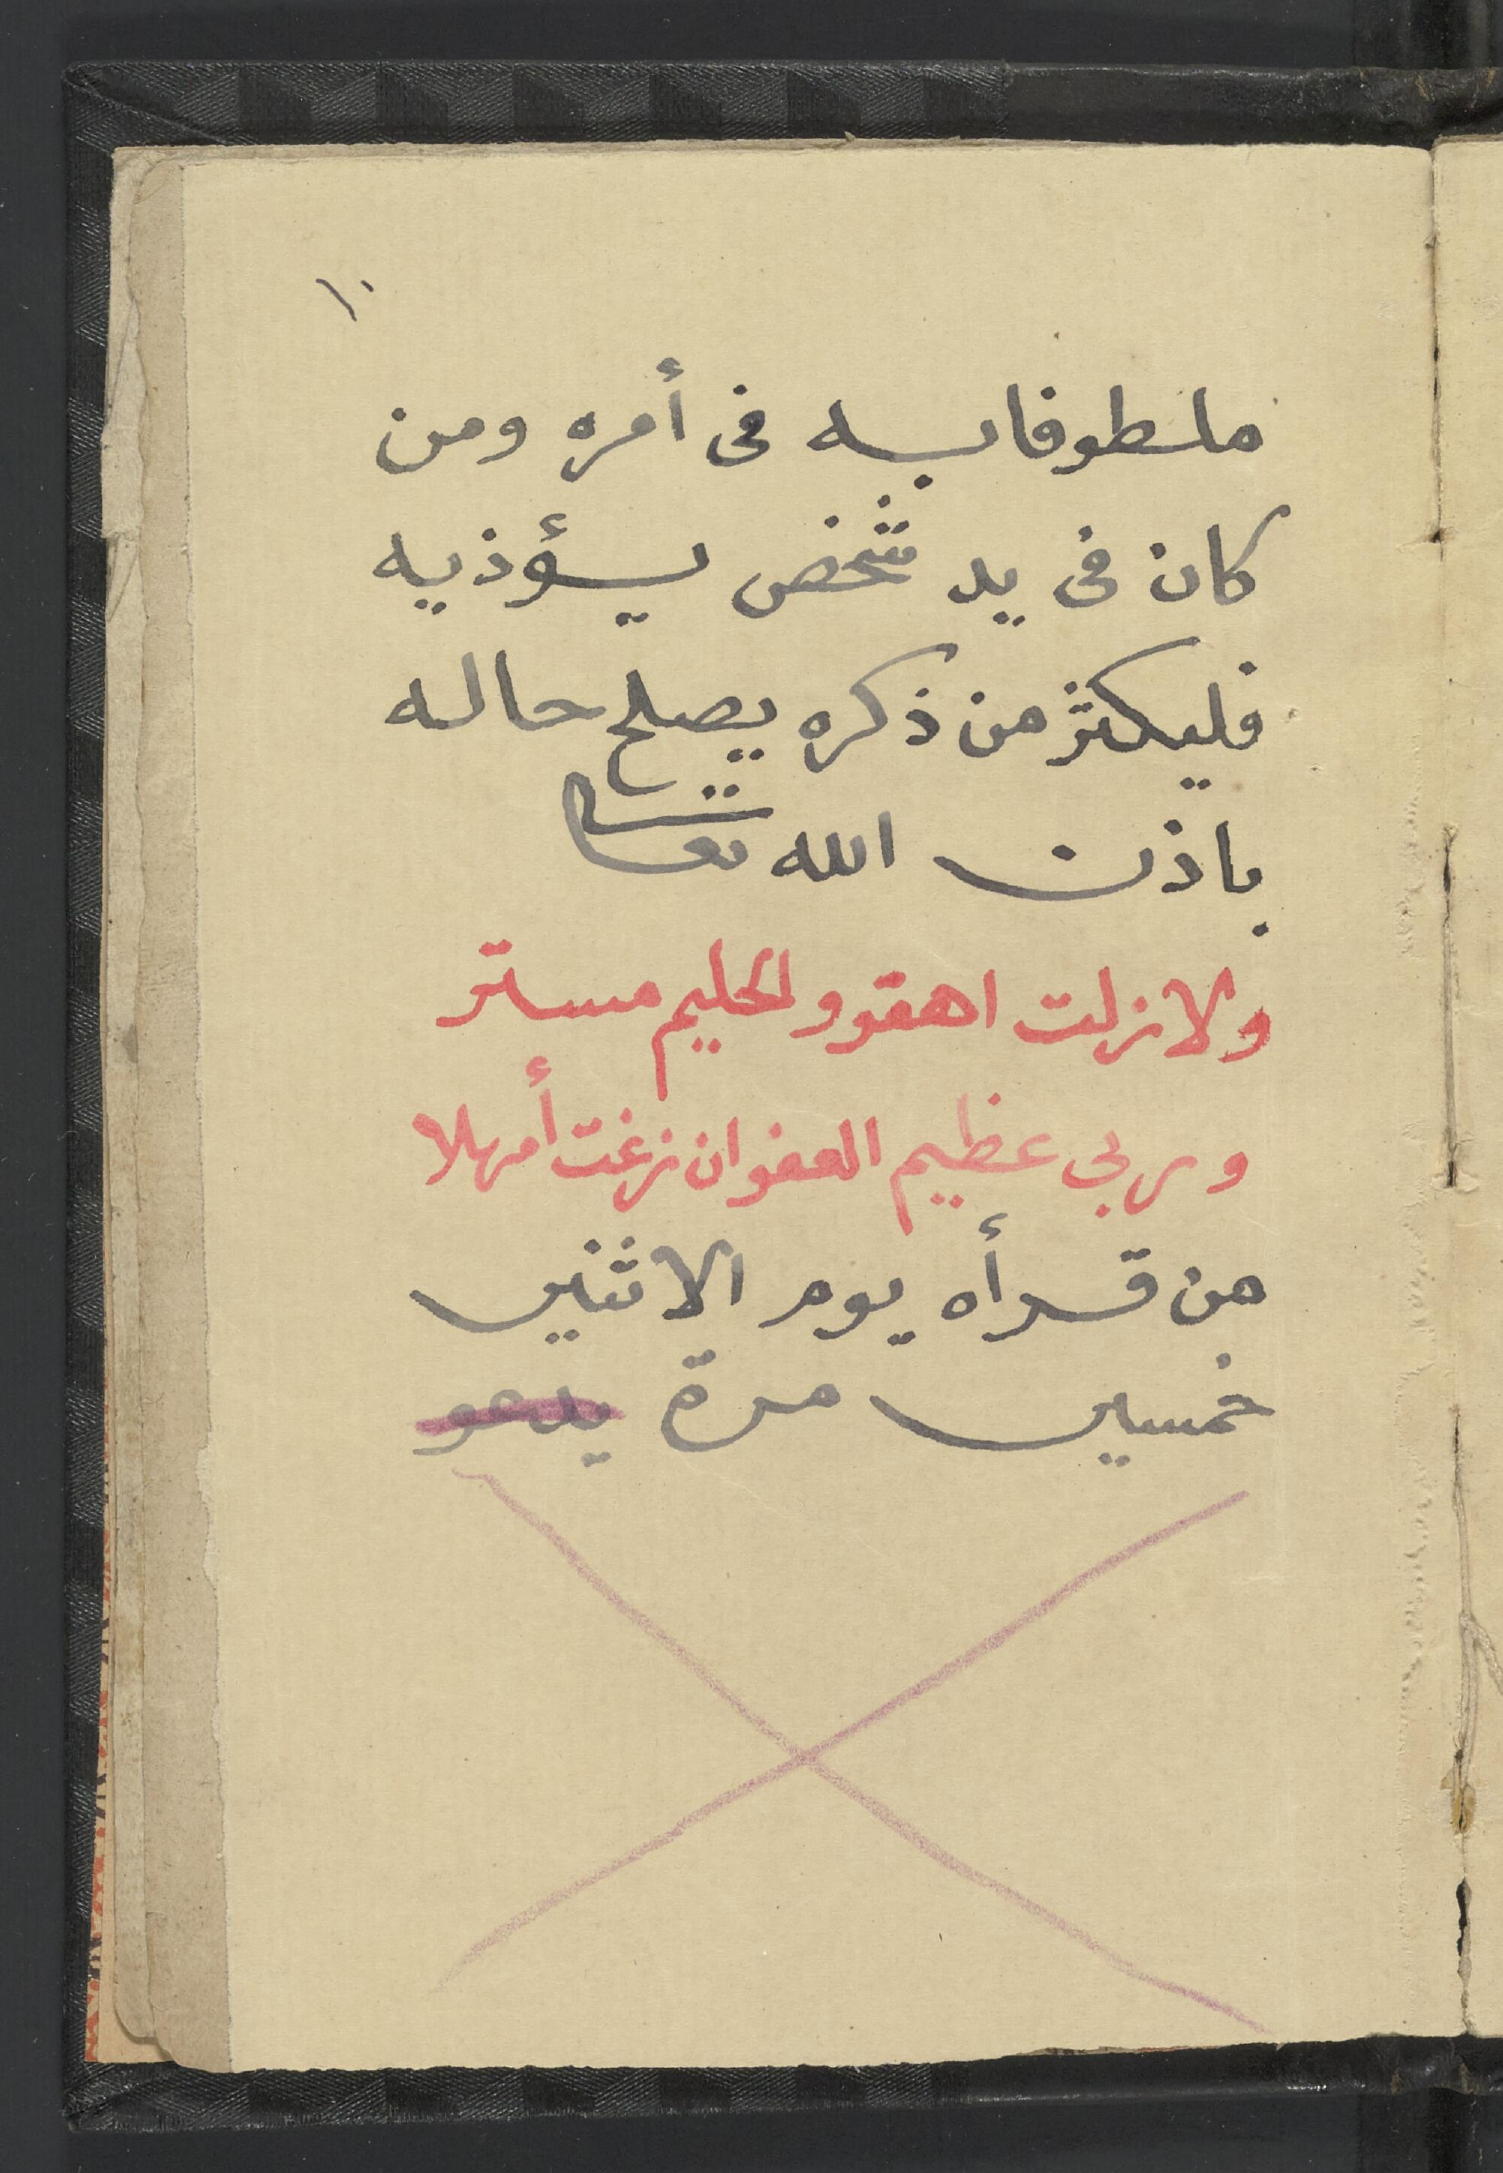 ١٠
ملطوفا به فى أمره ومن
كان فى يد شخص يؤذيه
فليكثر من ذكره يصلح حاله
باذن الله تعالى
ولازلت اهقو والحليم مستر
وربى عظيم العفو ان زغت أمهلا
من قرأه يوم الاثنين
خمسين مرة يدعو